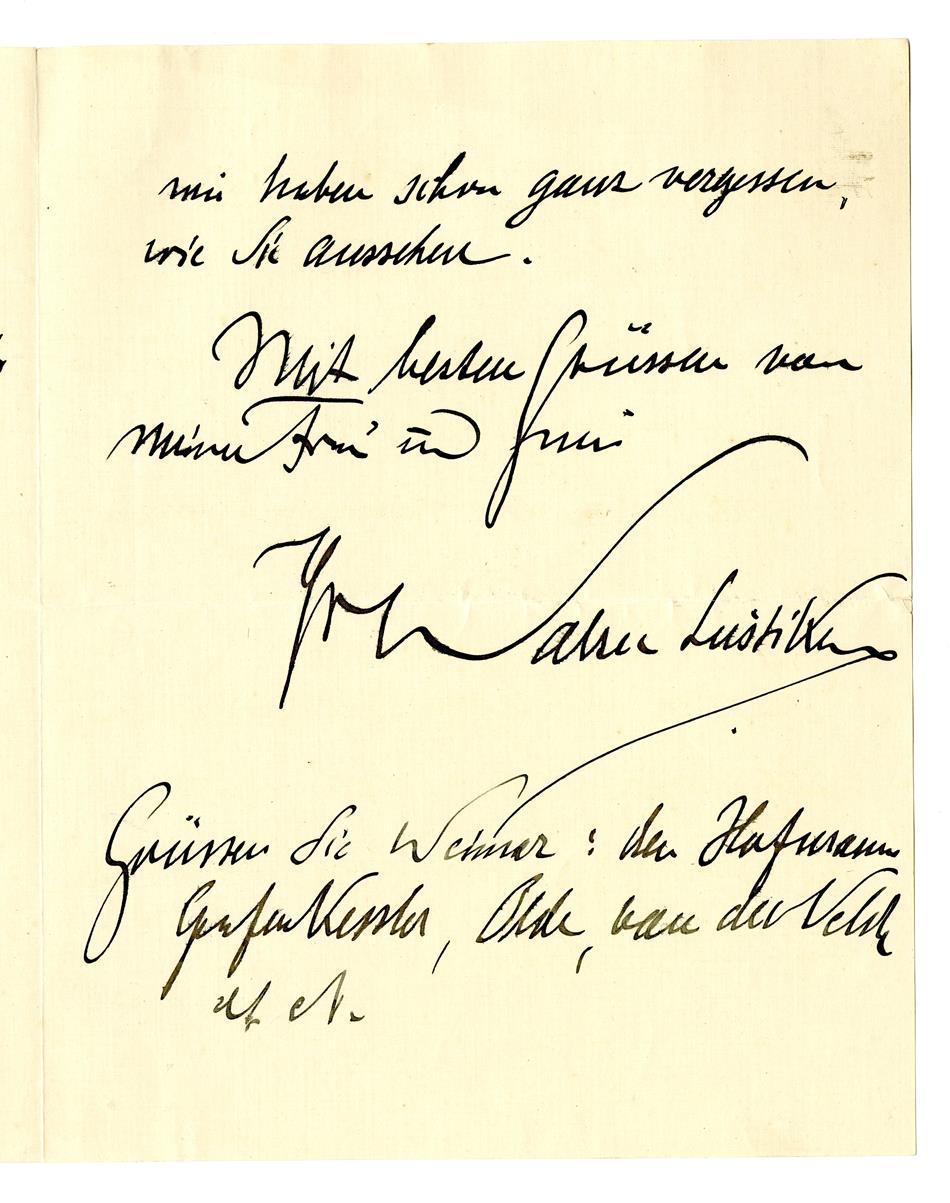 wir haben schon ganz vergessen,
wie Sie aussehen.
Mit besten Grüssen von
meiner Frau und mir
Ihr Walter Leistikow
Grüssen Sie Weimar : den Hofmann
Grafen Kessler, Olde, van der Velde